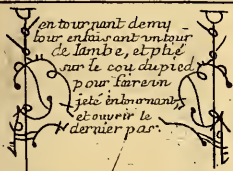 en tournant demy
tour enfaisant un tour
de Iambe, et plié
sur le cou du pied
pour faire un
jeté entournant
et ouvrir le
dernier pas.